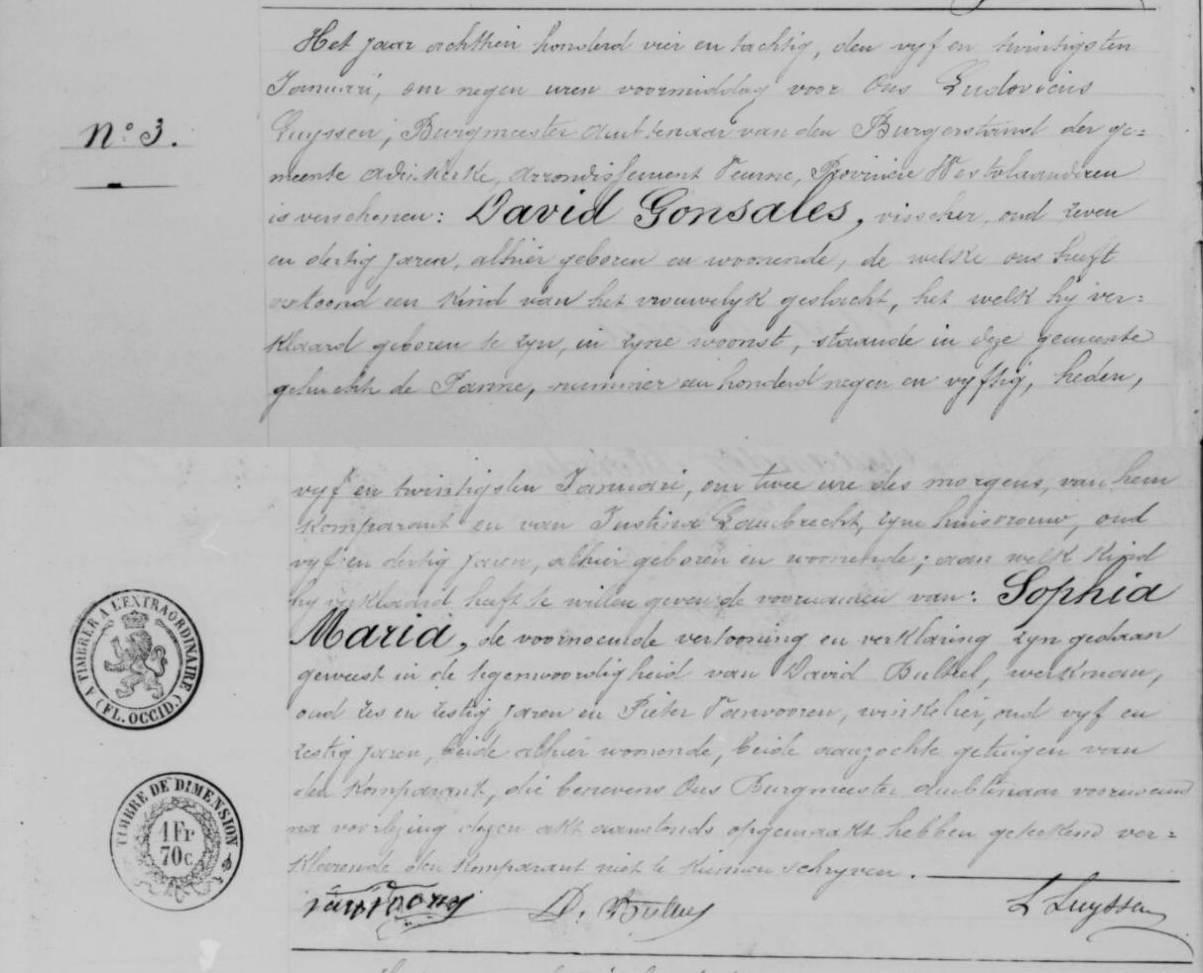 Het jaar achttien honderd vier en tachtig, den vyf en twintigsten
Januari, om negen uren voormiddag voor Ons Ludovicus
Luyssen, Burgmeester ambtenaar van den Burgerstand der ge=
meente Adinkerke, arrondissement Veurne, Provincie Westvlaanderen
is verschenen: David Gonsales, visscher, oud zeven
N° 3.
en dertig jaren, alhier geboren en woonende, de welke ons heeft
vertoond een kind van het vrouwelyk geslacht, het welk hy ver=
klaard geboren te zyn, in zyne woonst, staande in deze gemeente
gehuchte de Panne, nummer een honderd negen en vyftig, heden,
vyf en twintigsten Januari, om twee ure des morgens, van hem
komparant en van Justina Lambrecht, zyne huisvrouw, oud
vyf en dertig jaren, alhier geboren en woonende; aan welk kind
hy verklaard heeft te willen geven de voornamen van: Sophia
Maria, de voornoemde vertooning en verklaring zyn gedaan
geweest in de tegenwoordigheid van David Bulteel, werkman,
oud zes en zestig jaren en Pieter Vanvooren, winkelier, oud vyf en
zestig jaren, beide alhier woonende, beide aanzochte getuigen van
den komparant, die benevens Ons Burgmeester ambtenaar voornoemd
na voorlezing dezen akt aanstonds opgemaakt hebben geteekend ver=
klarende den komparant niet te kunnen schryven.
A TIMBRER A L'EXTRAORDINAIRE
(FL. OCCID.)
TIMBRE DE DIMENSION
1 Fr
70 c.
D. Bulteel
L Luyssen